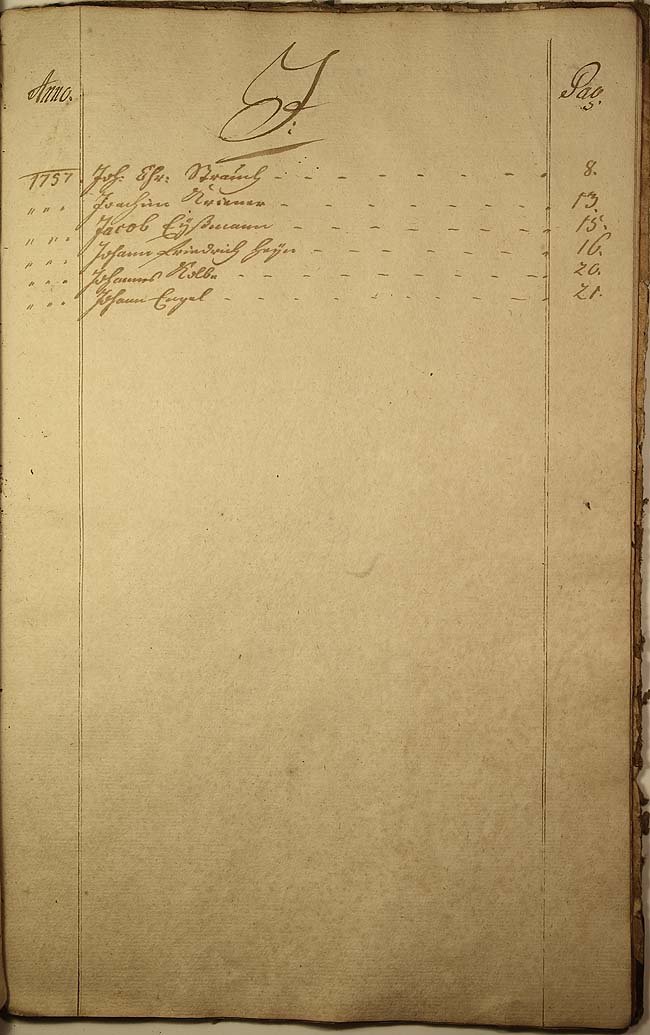 Anno. J: Pag.
1757. Joh: Chr: Strauch - - - - - - - - 8.
" " . Joachim Kriener - - - - - - - - 13.
" " . Jacob Eyßmann - - - - - - - - 15.
" " . Johann Friedrich Heyn - - - - - - - 16.
" " . Johannes Kolbe - - - - - - - - 20.
" " . Johann Engel - - - - - - - - 21.